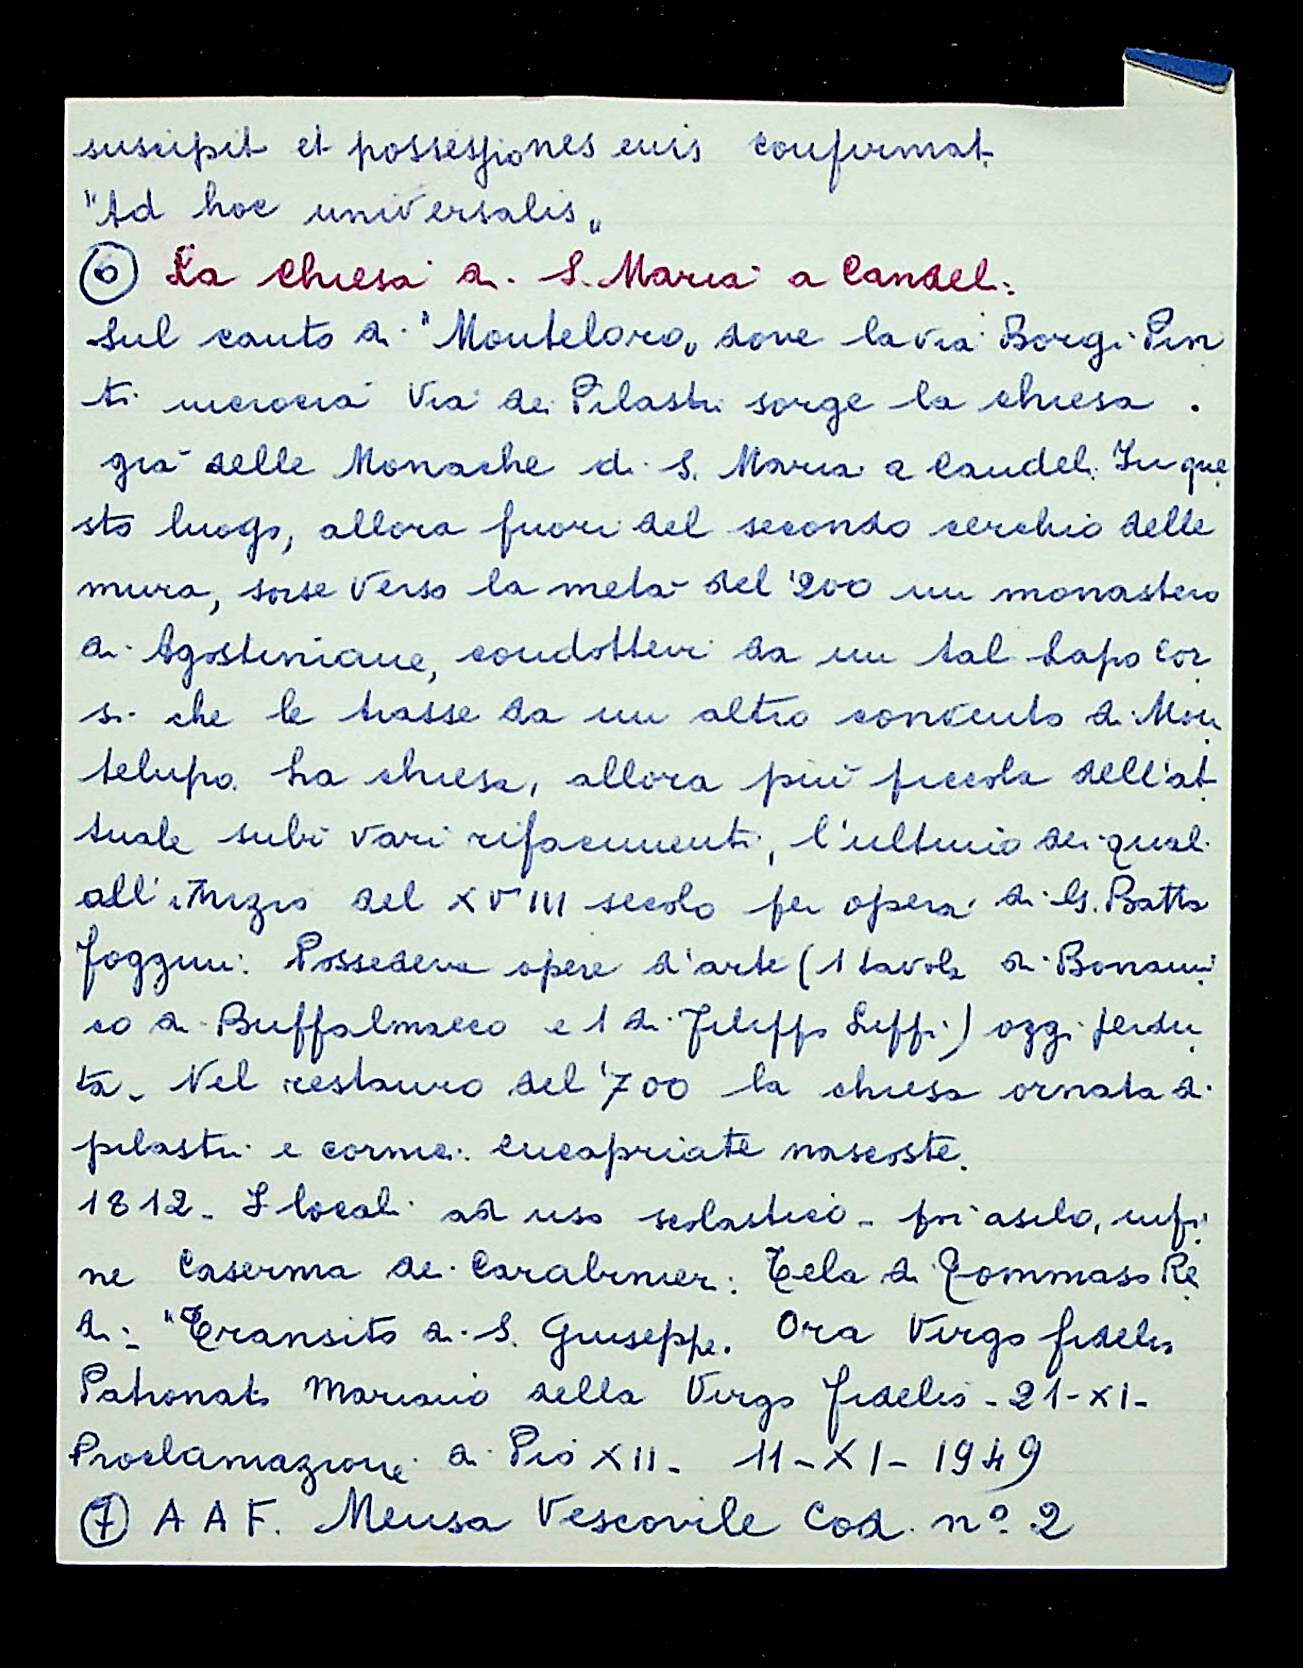 suscipit et possessiones euis confirmat.
"Ad hoc universalis„
⑥ La Chiesa di S. Maria a Candeli
Sul canto di "Monteloro„ dove la via Borgi Pin
ti incrocia Via dei Pilastri sorge la chiesa .
già delle Monache di S. Maria a Candeli. In que
sto luogo, allora fuori del secondo cerchio delle
mura, sorse verso la metà del '200 un monastero
di Agostiniane, condottevi da un tal Lapo Cor
si che le trasse da un altro convento di Mon
telupo. La chiesa, allora più piccola dell'at
tuale subì vari rifacimenti, l'ultimo dei quali
all'inizio del XVIII secolo per opera di G. Batta
Foggini. Possedeva opere d'arte (1 tavola di Bonami
co di Buffalmacco e 1 di Filippo Lippi) oggi perdu
ta. Nel restauro del '700 la chiesa ornata di
pilastri e cornici. Encapriate nascoste.
1812 - I locali ad uso scolastico - poi asilo, infi
ne Caserma dei Carabinieri. Tela di Tommaso Re
di: "Transito di S. Giuseppe. Ora Virgo fidelis
Patronato Mariano della Virgo fidelis - 21-XI-
Proclamazione di Pio XII - 11-XI-1949
⑦ A A F. Mensa Vescovile Cod. n° 2